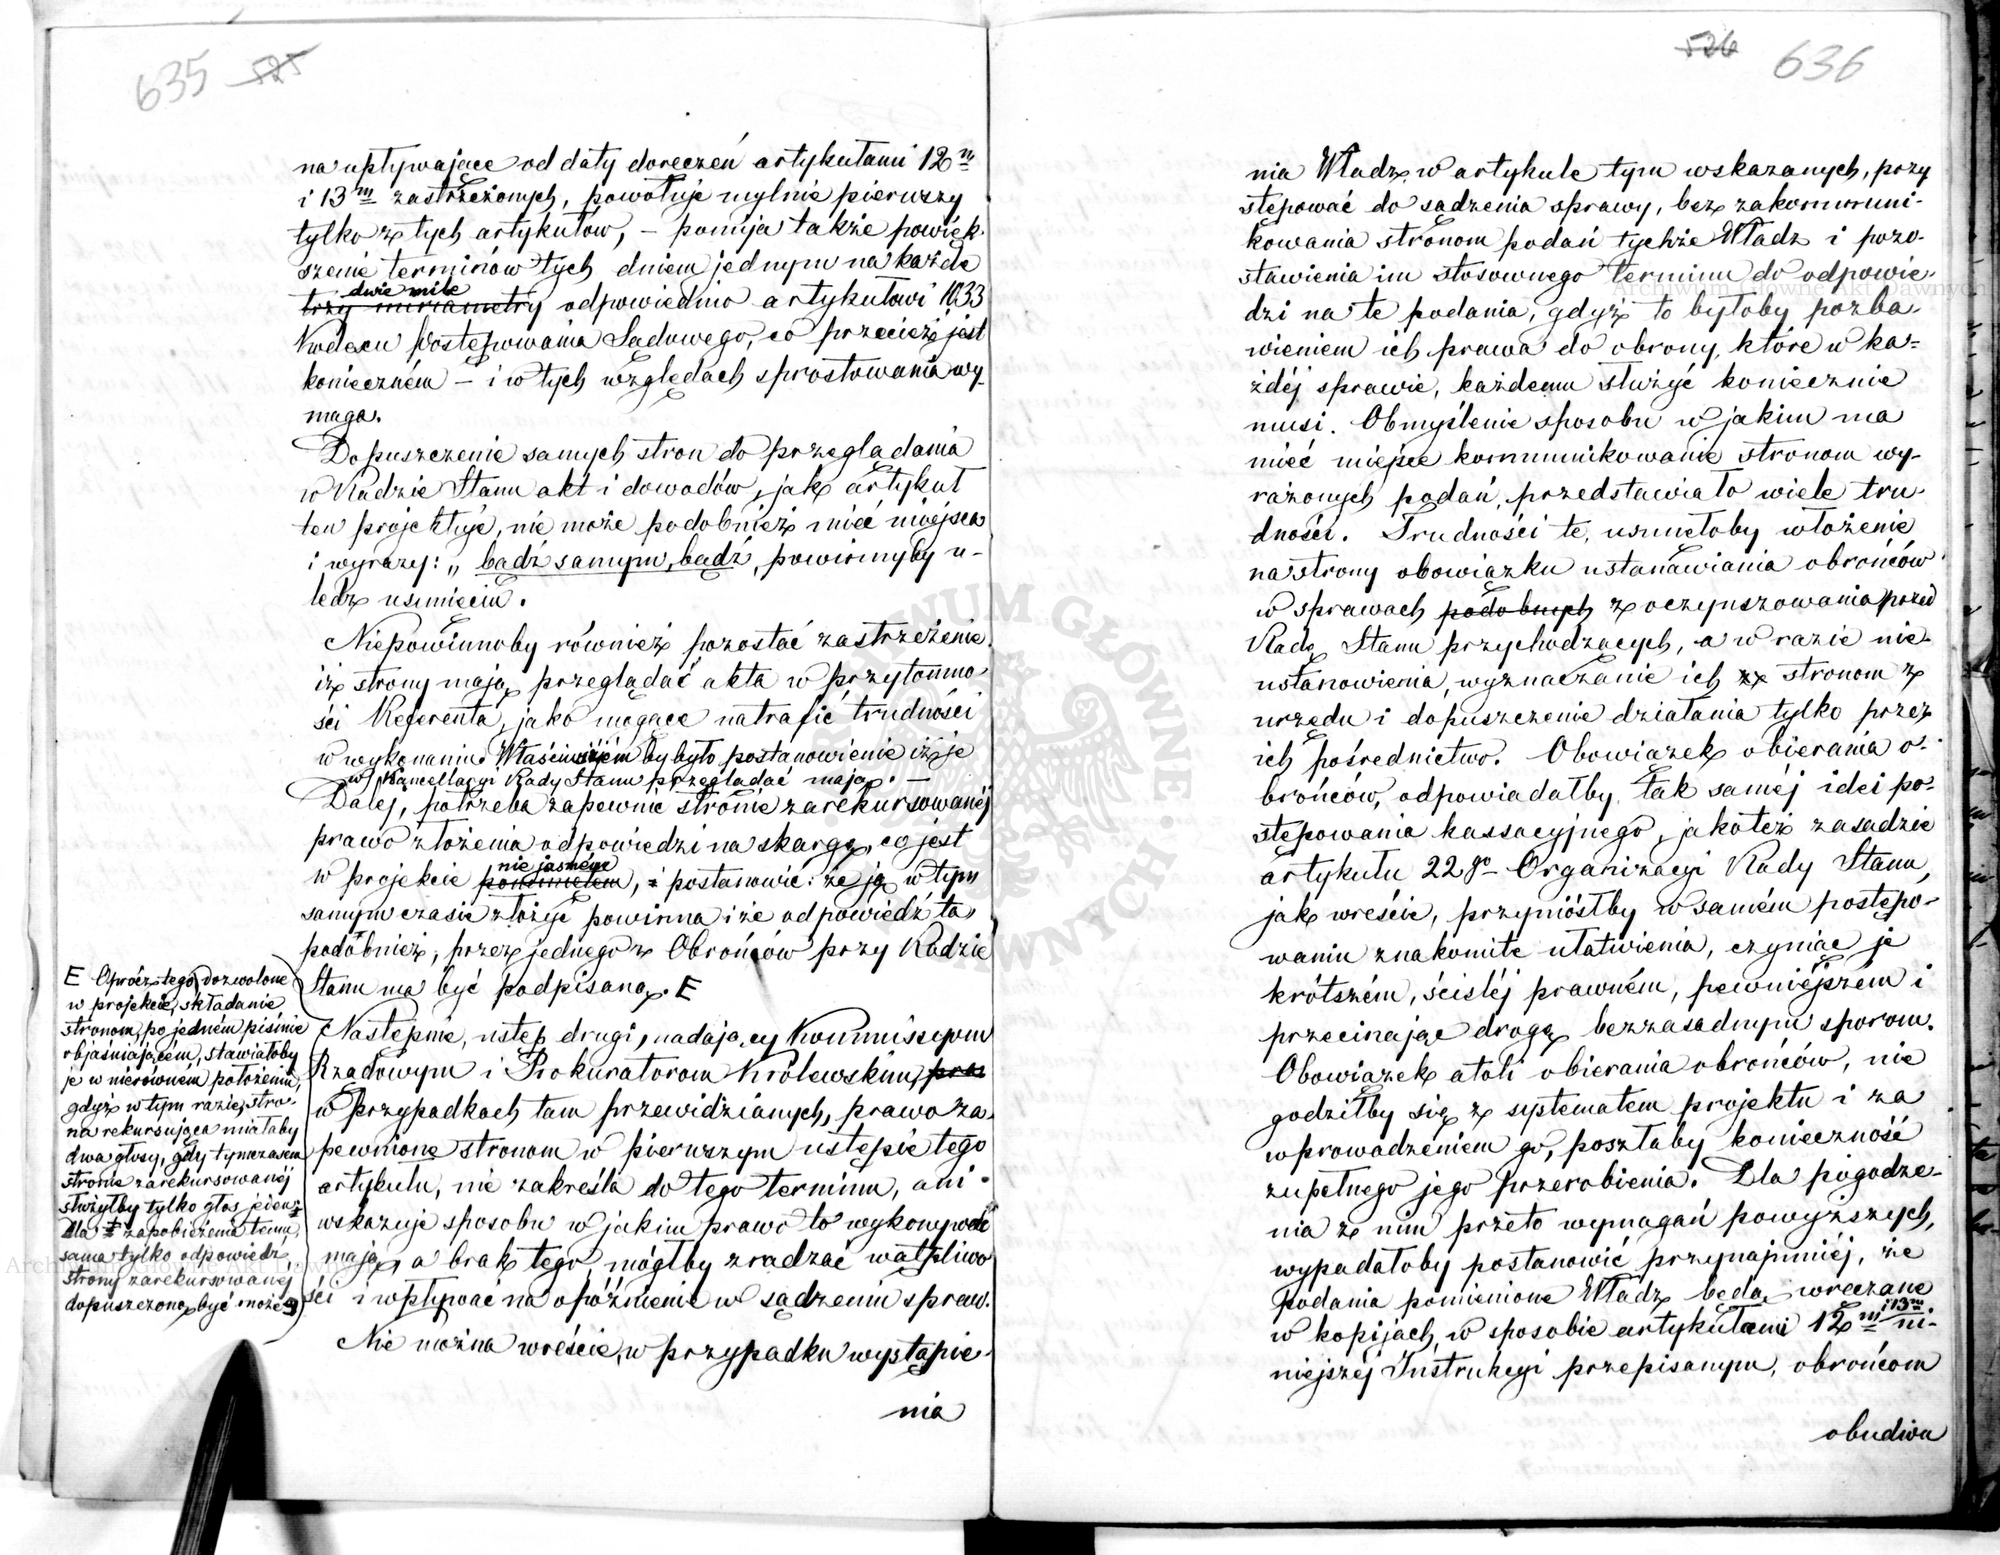 635 525
na upływające od daty doręczeń artykułami 12m
i 13m zastrzeżonych, powołuje mylnie pierwszy
tylko z tych artykułów, – pomija także powięk-
szenie terminów tych dniem jednym na każde
dwie mile
trzy miriametry odpowiednio artykułowi 1033
Kodexu Postępowania Sądowego, co przecież jest
konieczném – i w tych względach sprostowania wy-
maga.
Dopuszczenie samych stron do przeglądania
w Radzie Stanu akt i dowodów, jak artykuł
ten projektuje, nie może podobnież mieć miejsca
i wyrazy: „bądź samym, bądź, powinnyby u-
ledz usunięciu.
Niepowinnoby również pozostać zastrzeżenie
iż strony mają przeglądać akta w przytomno-
ści Referenta, jako mogące natrafić trudności
w wykonaniu. Właściwszém by było postanowienie iż je
w Kancellaryi Rady Stanu przeglądać mają. –
Dalej, potrzeba zapewnić stronie zarekursowanéj
prawo złożenia odpowiedzi na skargę, co jest
nie jasném
w projekcie , i postanowić: że ją w tym
samym czasie złożyć powinna i że odpowiedź ta,
podobnież, przez jednego z Obrońców przy Radzie
Stanu ma być podpisaną. E
E Oprócz tego, dozwolone
w projekcie, składanie
stronom, po jedném piśmie
objaśniającém, stawiałoby
je w nierówném położeniu,
gdyż w tym razie, stro-
na rekursująca miałaby
dwa głosy, gdy tymczasem
stronie zarekursowanéj
służyłby tylko głos jeden.
Dla zapobieżenia temu,
sama tylko odpowiedź
strony zarekursowanéj
dopuszczoną być może
Następnie, ustęp drugi, nadający Kommissyom
Rządowym i Prokuratorom Królewskim,
w przypadkach tam przewidzianych, prawo za-
pewnione stronom w pierwszym ustępie tego
artykułu, nie zakreśla do tego terminu, ani
wskazuje sposobu w jakim prawo to wykonywać
mają, a brak tego, mógłby zradzać wątpliwo-
ści i wpływać na opóźnienie w sądzeniu spraw.
Nie można wreście, w przypadku wystąpie-
nia
526 636
nia Władz w artykule tym wskazanych, przy-
stępować do sądzenia sprawy, bez zakommuni-
kowania stronom podań tychże Władz i pozo-
stawienia im stosownego terminu do odpowie-
dzi na te podania, gdyż to byłoby pozba-
wieniem ich prawa do obrony, które w ka-
żdéj sprawie, każdemu służyć koniecznie
musi. Obmyślenie sposobu w jakim ma
mieć miejsce kommunikowanie stronom wy-
rażonych podań, przedstawia to wiele tru-
dności. Trudności te, usunęłoby włożenie
na strony obowiązku ustanawiania obrońców
w sprawach podobnych z oczynszowania przed
Radę Stanu przychodzących, a w razie nie-
ustanowienia, wyznaczanie ich stronom z
urzędu i dopuszczenie działania tylko przez
ich pośrednictwo. Obowiązek obierania o-
brońców, odpowiadałby tak saméj idei po-
stępowania kassacyjnego, jakoteż zasadzie
artykułu 22go Organizacyi Rady Stanu,
jak wreście, przyniósłby w samém postępo-
waniu znakomite ułatwienia, czyniąc je
krótszém, ściśléj prawném, pewniejszém i
przecinając drogę bezzasadnym sporom.
Obowiązek atoli obierania obrońców, nie
godziłby się z systematem projektu i za
wprowadzeniem go, poszłaby konieczność
zupełnego jego przerobienia. Dla pogodze-
nia z nim przeto wymagań powyższych,
wypadałoby postanowić przynajmniéj, że
podania pomienione Władz będą wręczane
i 13m
w kopijach, w sposobie artykułami 12m ni-
niejszéj Instrukcyi przepisanym, obrońcom
obudwu
ARCHIWUM GŁÓWNE AKT DAWNYCH
Archiwum Główne Akt Dawnych
Archiwum Główne Akt Dawnych